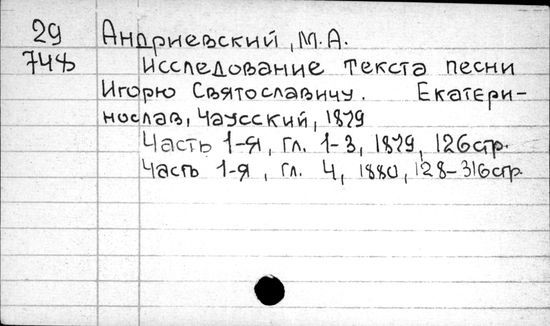 29 Андриевский, М.А.
748 Исследование текста песни
Игорю Святославичу. Екатери-
нослав, Чаусский, 1879
Часть 1-я, гл. 1-3, 1879, 126стр.
Часть 1-я, гл. 4, 1880, 128-316стр.